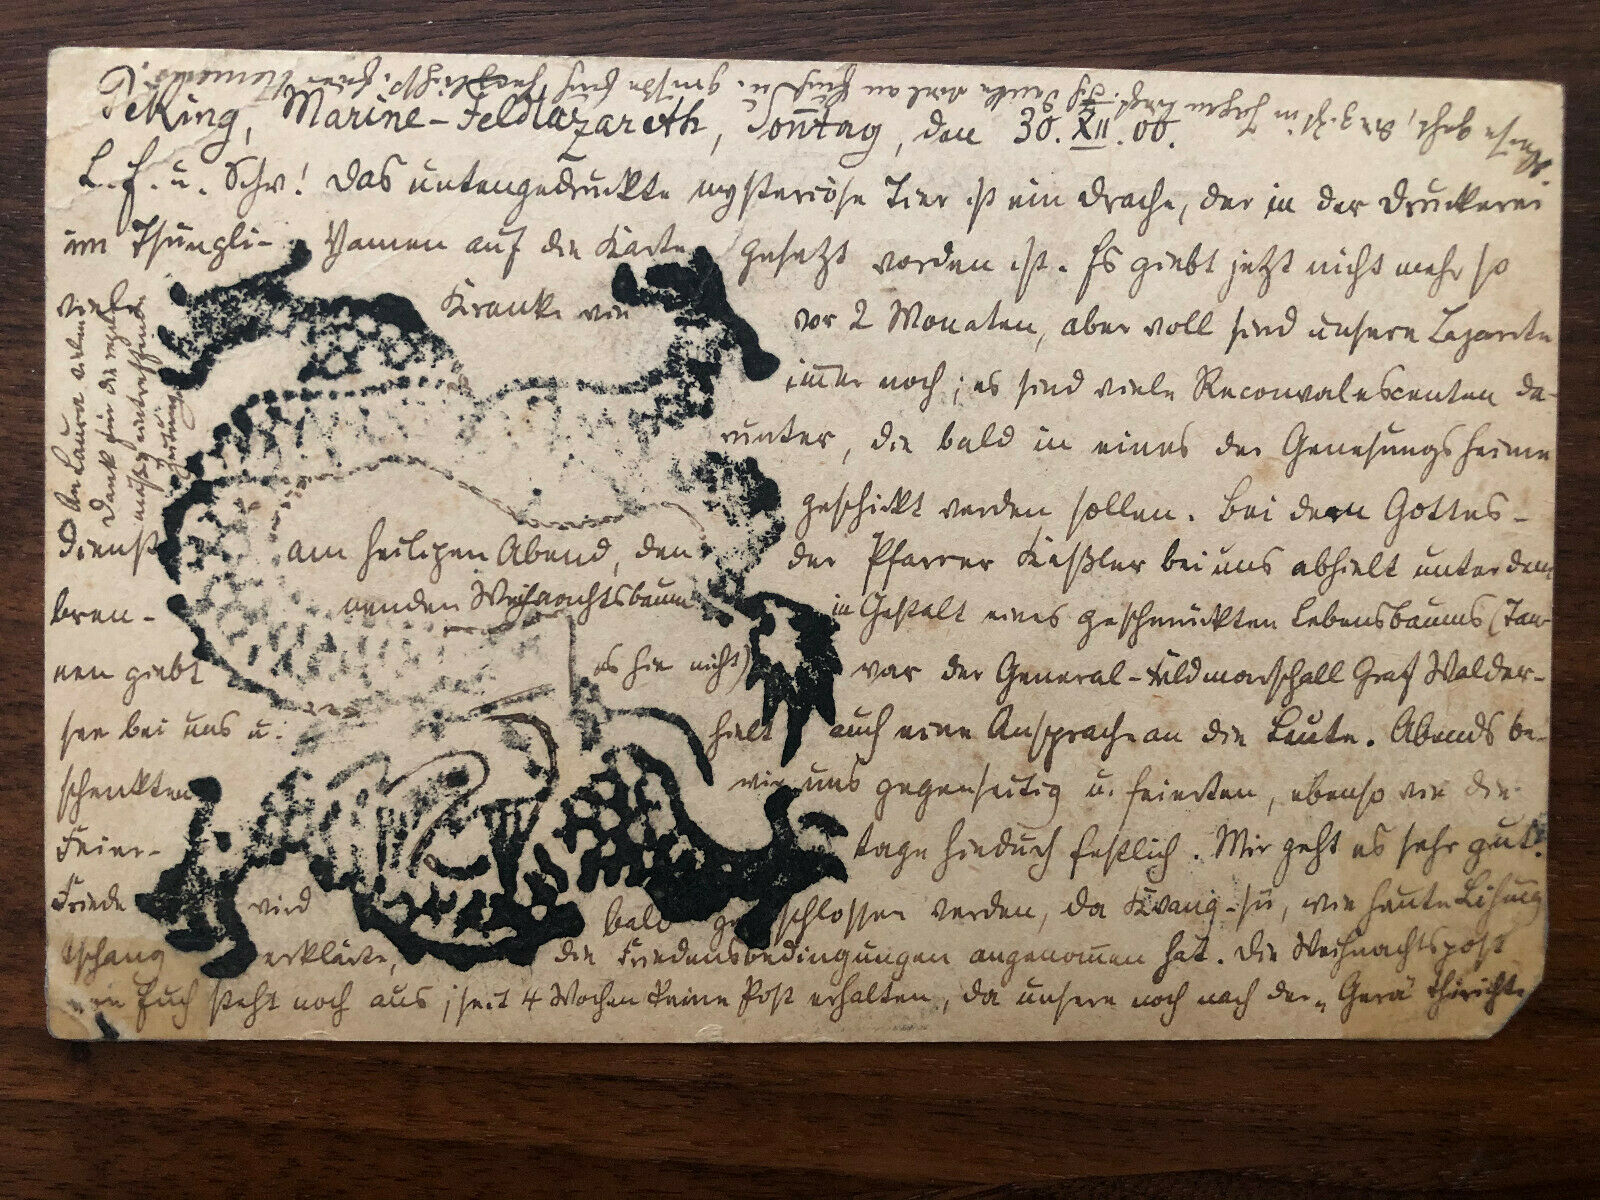 Peking, Marine-Feldlazareth, Sonntag, den 30. XII. 00.
L. E. u. Schw! Das untengedruckte mysteriöse Tier ist ein Drache, der in der Druckerei
im Tsungli- Yamen auf die Karte gesetzt worden ist. Es giebt jetzt nicht mehr so
viele Kranke wie vor 2 Monaten, aber voll sind unsere Lazarete
immer noch; es sind viele Reconvalescenten da-
runter, die bald in eines der Genesungsheime
geschickt werden sollen. Bei dem Gottes-
dienst am heiligen Abend, den der Pfarrer Keßler bei uns abhielt unter dem
bren- nenden Weihnachtsbaum in Gestalt eines geschmückten Lebensbaums (Tan-
nen giebt es hier nicht) war der General-Feldmarschall Graf Walder-
see bei uns u. hielt auch eine Ansprache an die Leute. Abends be-
schenkten wir uns gegenseitig u. feierten, ebenso wie die
Feier- tage hindurch festlich. Mir geht es sehr gut.
Friede wird bald geschlossen werden, da Kwang-sü, wie heute Lihung
tschang erklärte, die Friedensbedingungen angenommen hat. Die Weihnachtspost
von Euch steht noch aus; seit 4 Wochen keine Post erhalten, da unsere noch nach der „Gera"
An Laura vielen
Dank für die
Zeitung